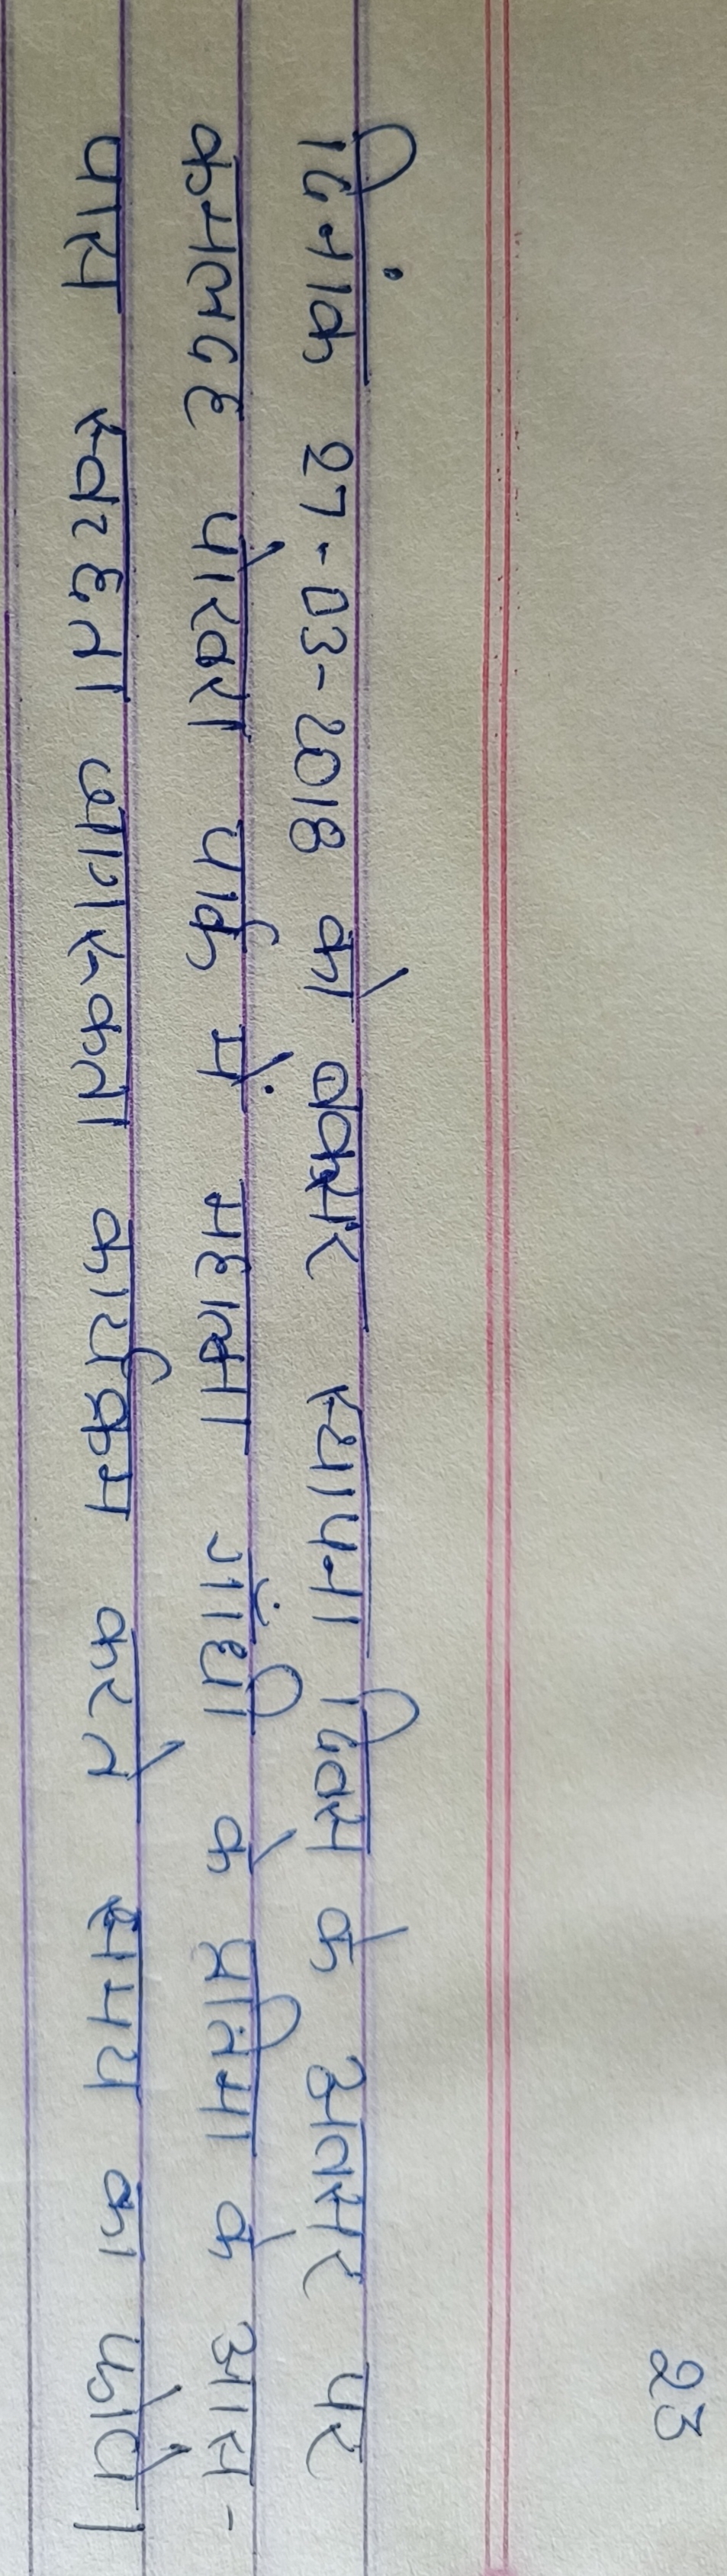 23
दिनांक 27-03-2018 को बक्सर स्थापना दिवस के अवसर पर
कमलदह पोखरा पार्क में महात्मा गाँधी के प्रतिमा के आस-
पास स्वच्छता जागरूकता कार्यक्रम करते समय का फोटो।